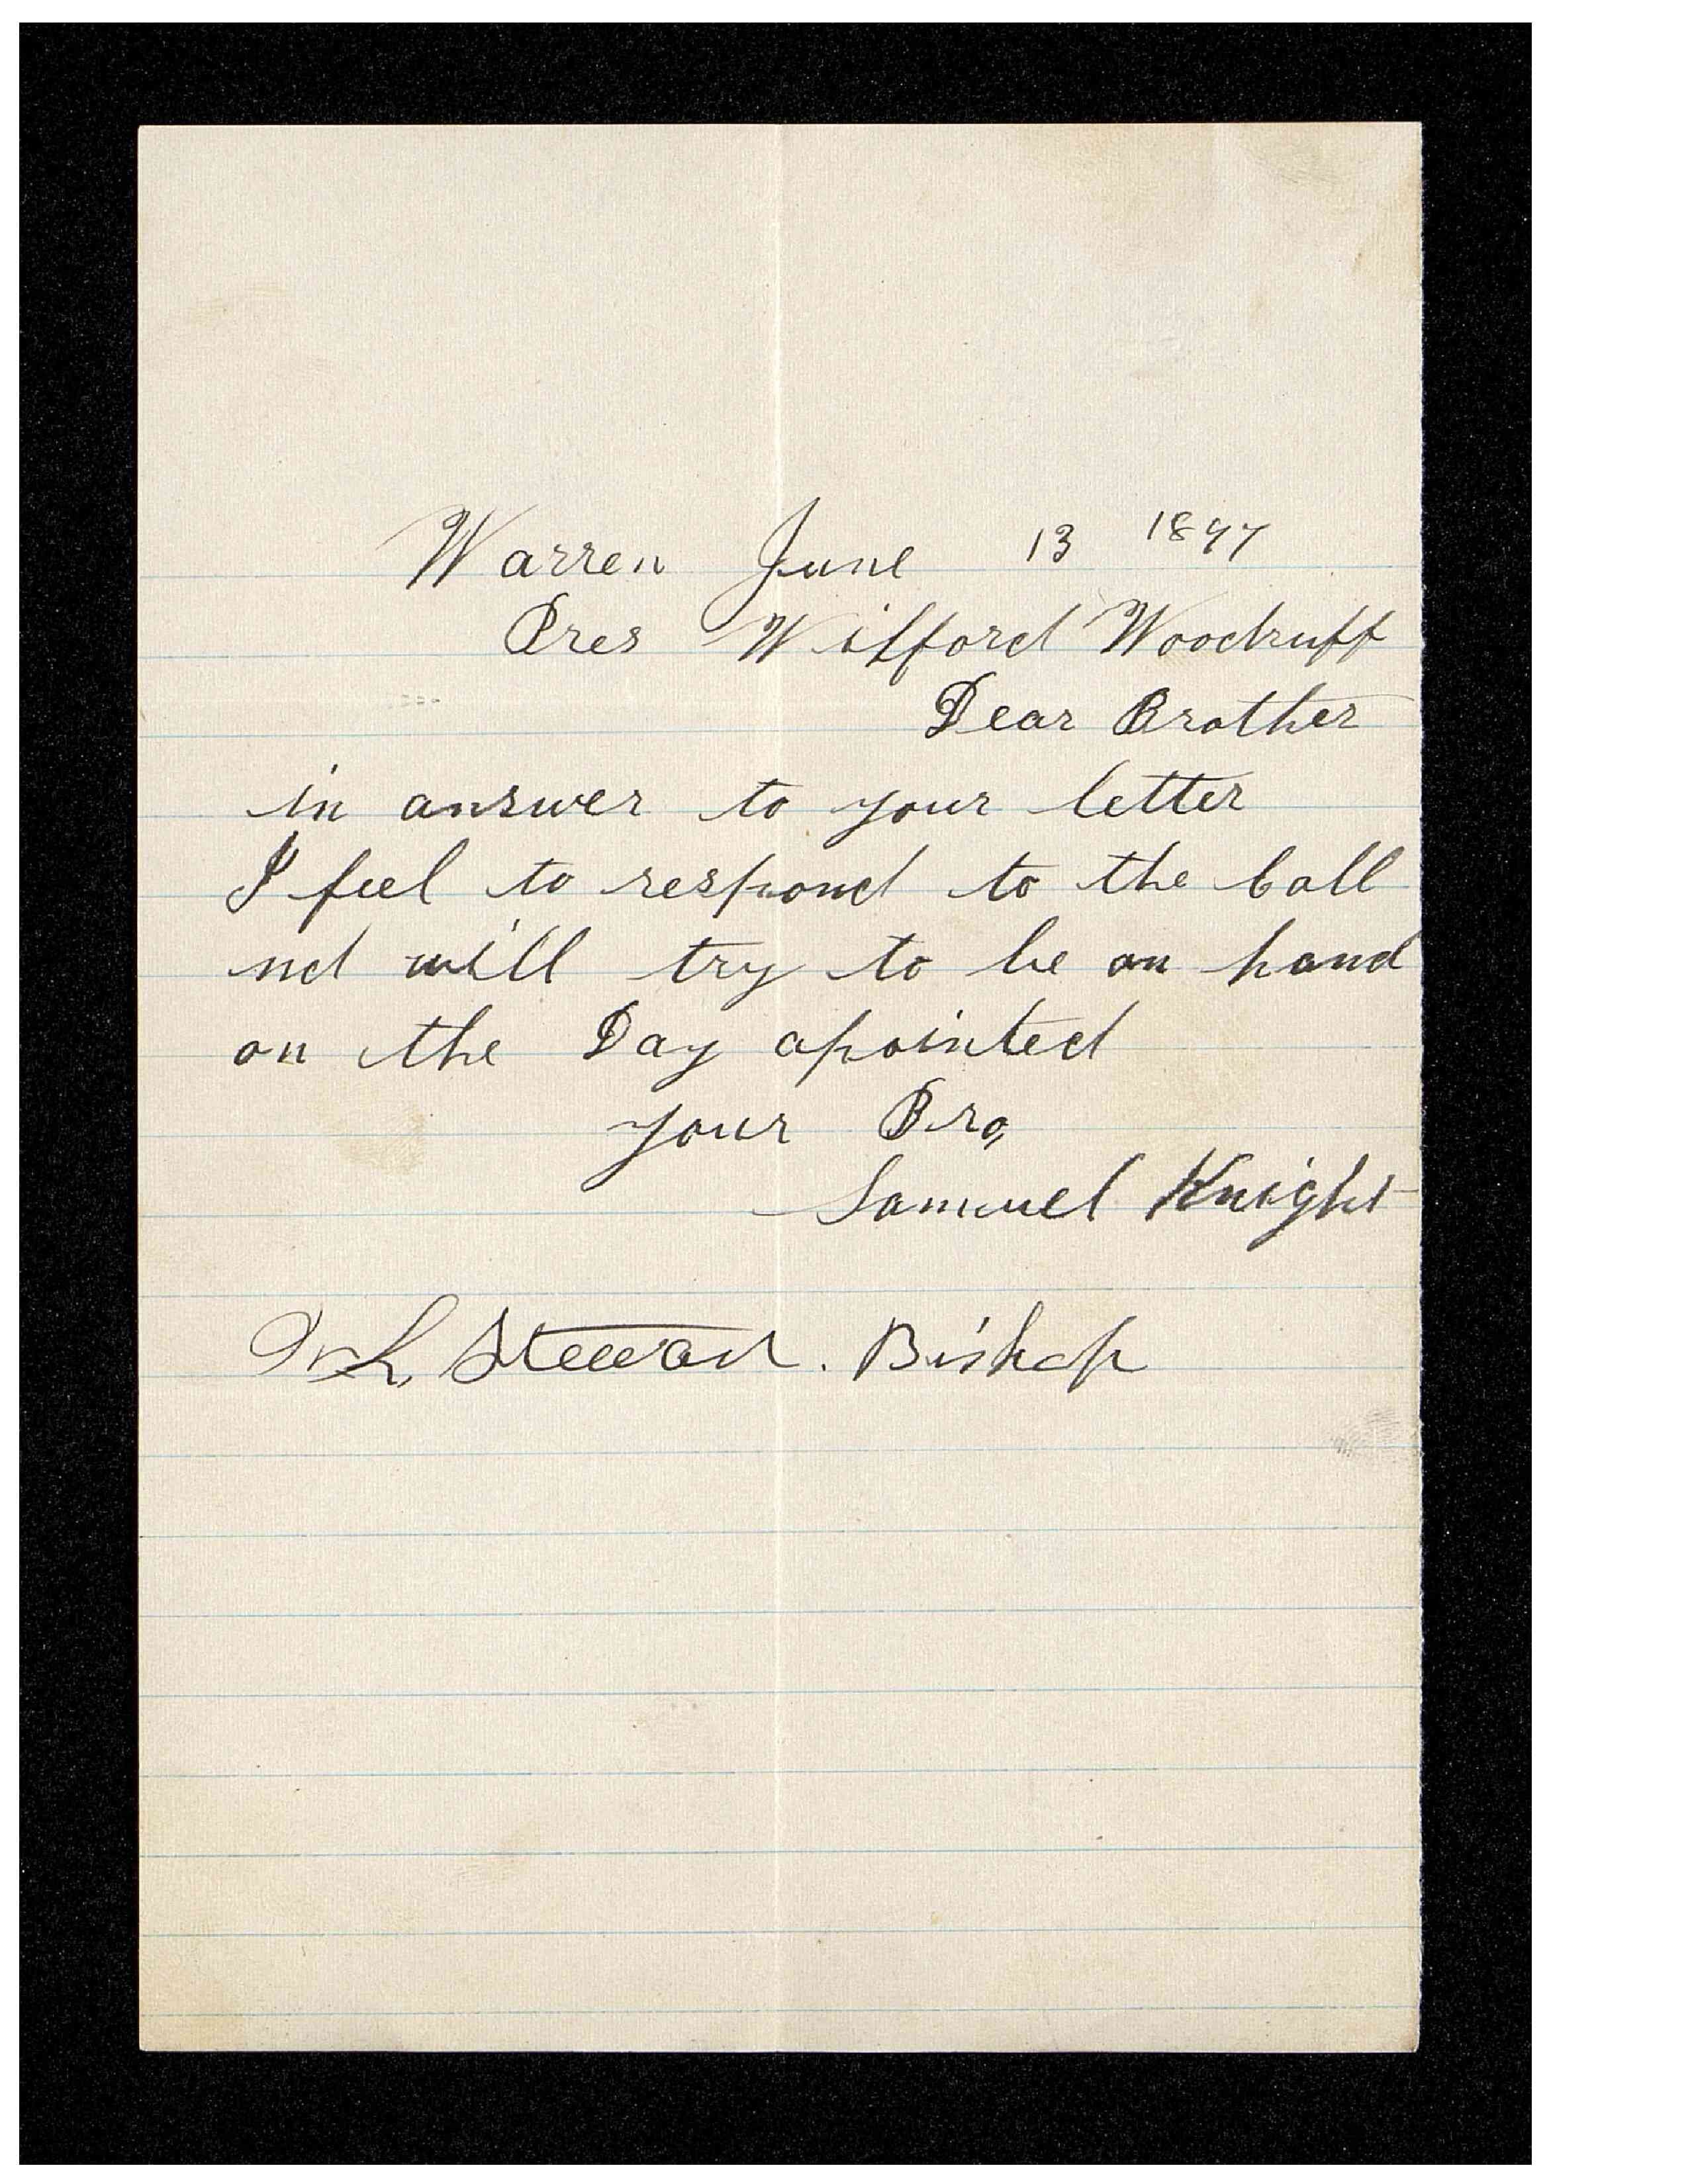 Warren June 13 1897
Pres Wilford Woodruff
Dear Brother
in answer to your letter
I feel to respond to the Call
nd will try to be on hand
on the Day apointed
your Bro,
Samuel Knight
Stewart. Bishop